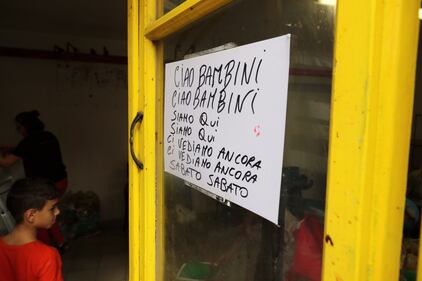 CIAO BAMBINI
CIAO BAMBINI
SIAMO QUI
SIAMO QUI
CI VEDIAMO ANCORA
CI VEDIAMO ANCORA
SABATO SABATO